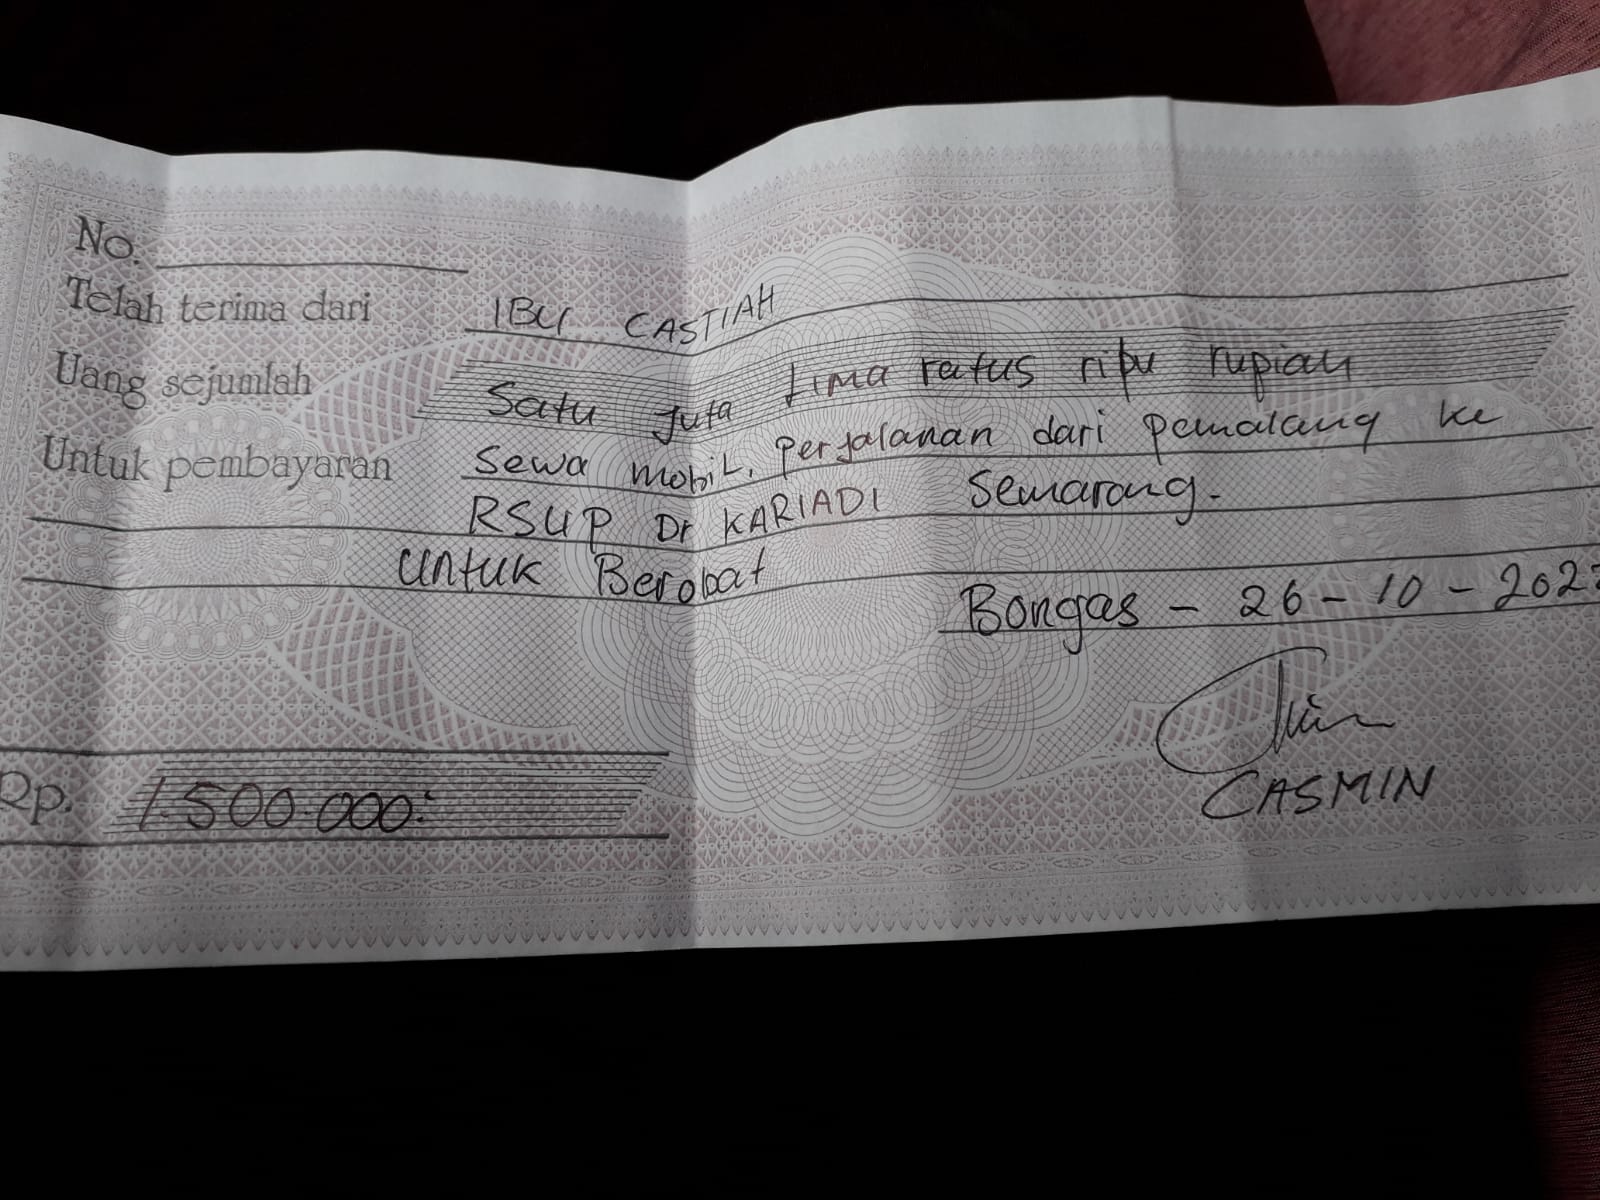 No.
Telah terima dari IBU CASTIAH
Uang sejumlah Satu juta Lima ratus ribu rupiah
Untuk pembayaran Sewa mobil, perjalanan dari pemalang ke
RSUP Dr KARIADI Semarang.
Untuk Berobat
Bongas - 26 - 10 -
CASMIN
Rp. 1.500.000.-